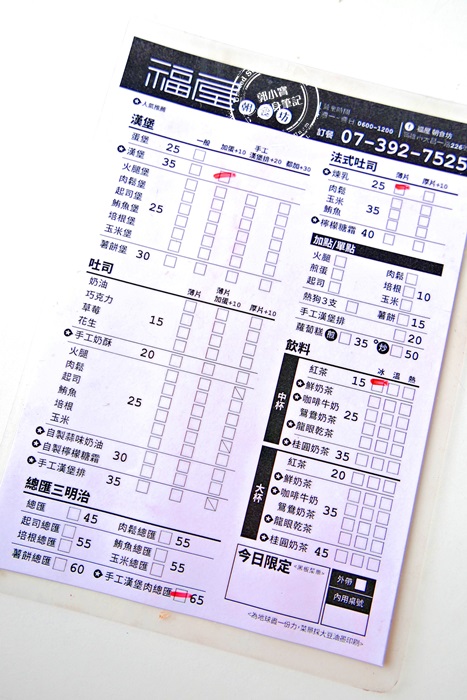 福屋
朝食坊
郭小寶
營業時間
0600-1200
福屋 朝食坊
訂餐 07-392-7525
人氣推薦
漢堡
一般
加蛋+10
手工漢堡排+20
都加+30
蛋堡 25
漢堡 35
火腿堡
肉鬆堡
起司堡
鮪魚堡 25
培根堡
玉米堡
薯餅堡 30
吐司
薄片
薄片加蛋+10
厚片+10
奶油
巧克力
草莓 15
花生
手工奶酥 20
火腿
肉鬆
起司
鮪魚 25
培根
玉米
自製蒜味奶油 30
自製檸檬糖霜
手工漢堡排 35
總匯三明治
總匯 45
肉鬆總匯
起司總匯
鮪魚總匯
培根總匯 55
玉米總匯 55
薯餅總匯 60
手工漢堡肉總匯 65
法式吐司
薄片 厚片+10
煉乳 25
肉鬆
玉米 35
鮪魚
檸檬糖霜 40
加點/單點
火腿 肉鬆
煎蛋 培根 10
起司 玉米
熱狗3支 薯餅 15
手工漢堡排 20
蘿蔔糕 煎 35 炒 50
飲料
冰 溫 熱
中杯
紅茶 15
鮮奶茶
咖啡牛奶
鴛鴦奶茶 25
龍眼乾茶
桂圓奶茶 35
大杯
紅茶 20
鮮奶茶
咖啡牛奶
鴛鴦奶茶 35
龍眼乾茶
桂圓奶茶 45
今日限定
<黑板菜單>
外帶
內用桌號
<為地球盡一份力,菜單採大豆油墨印刷>